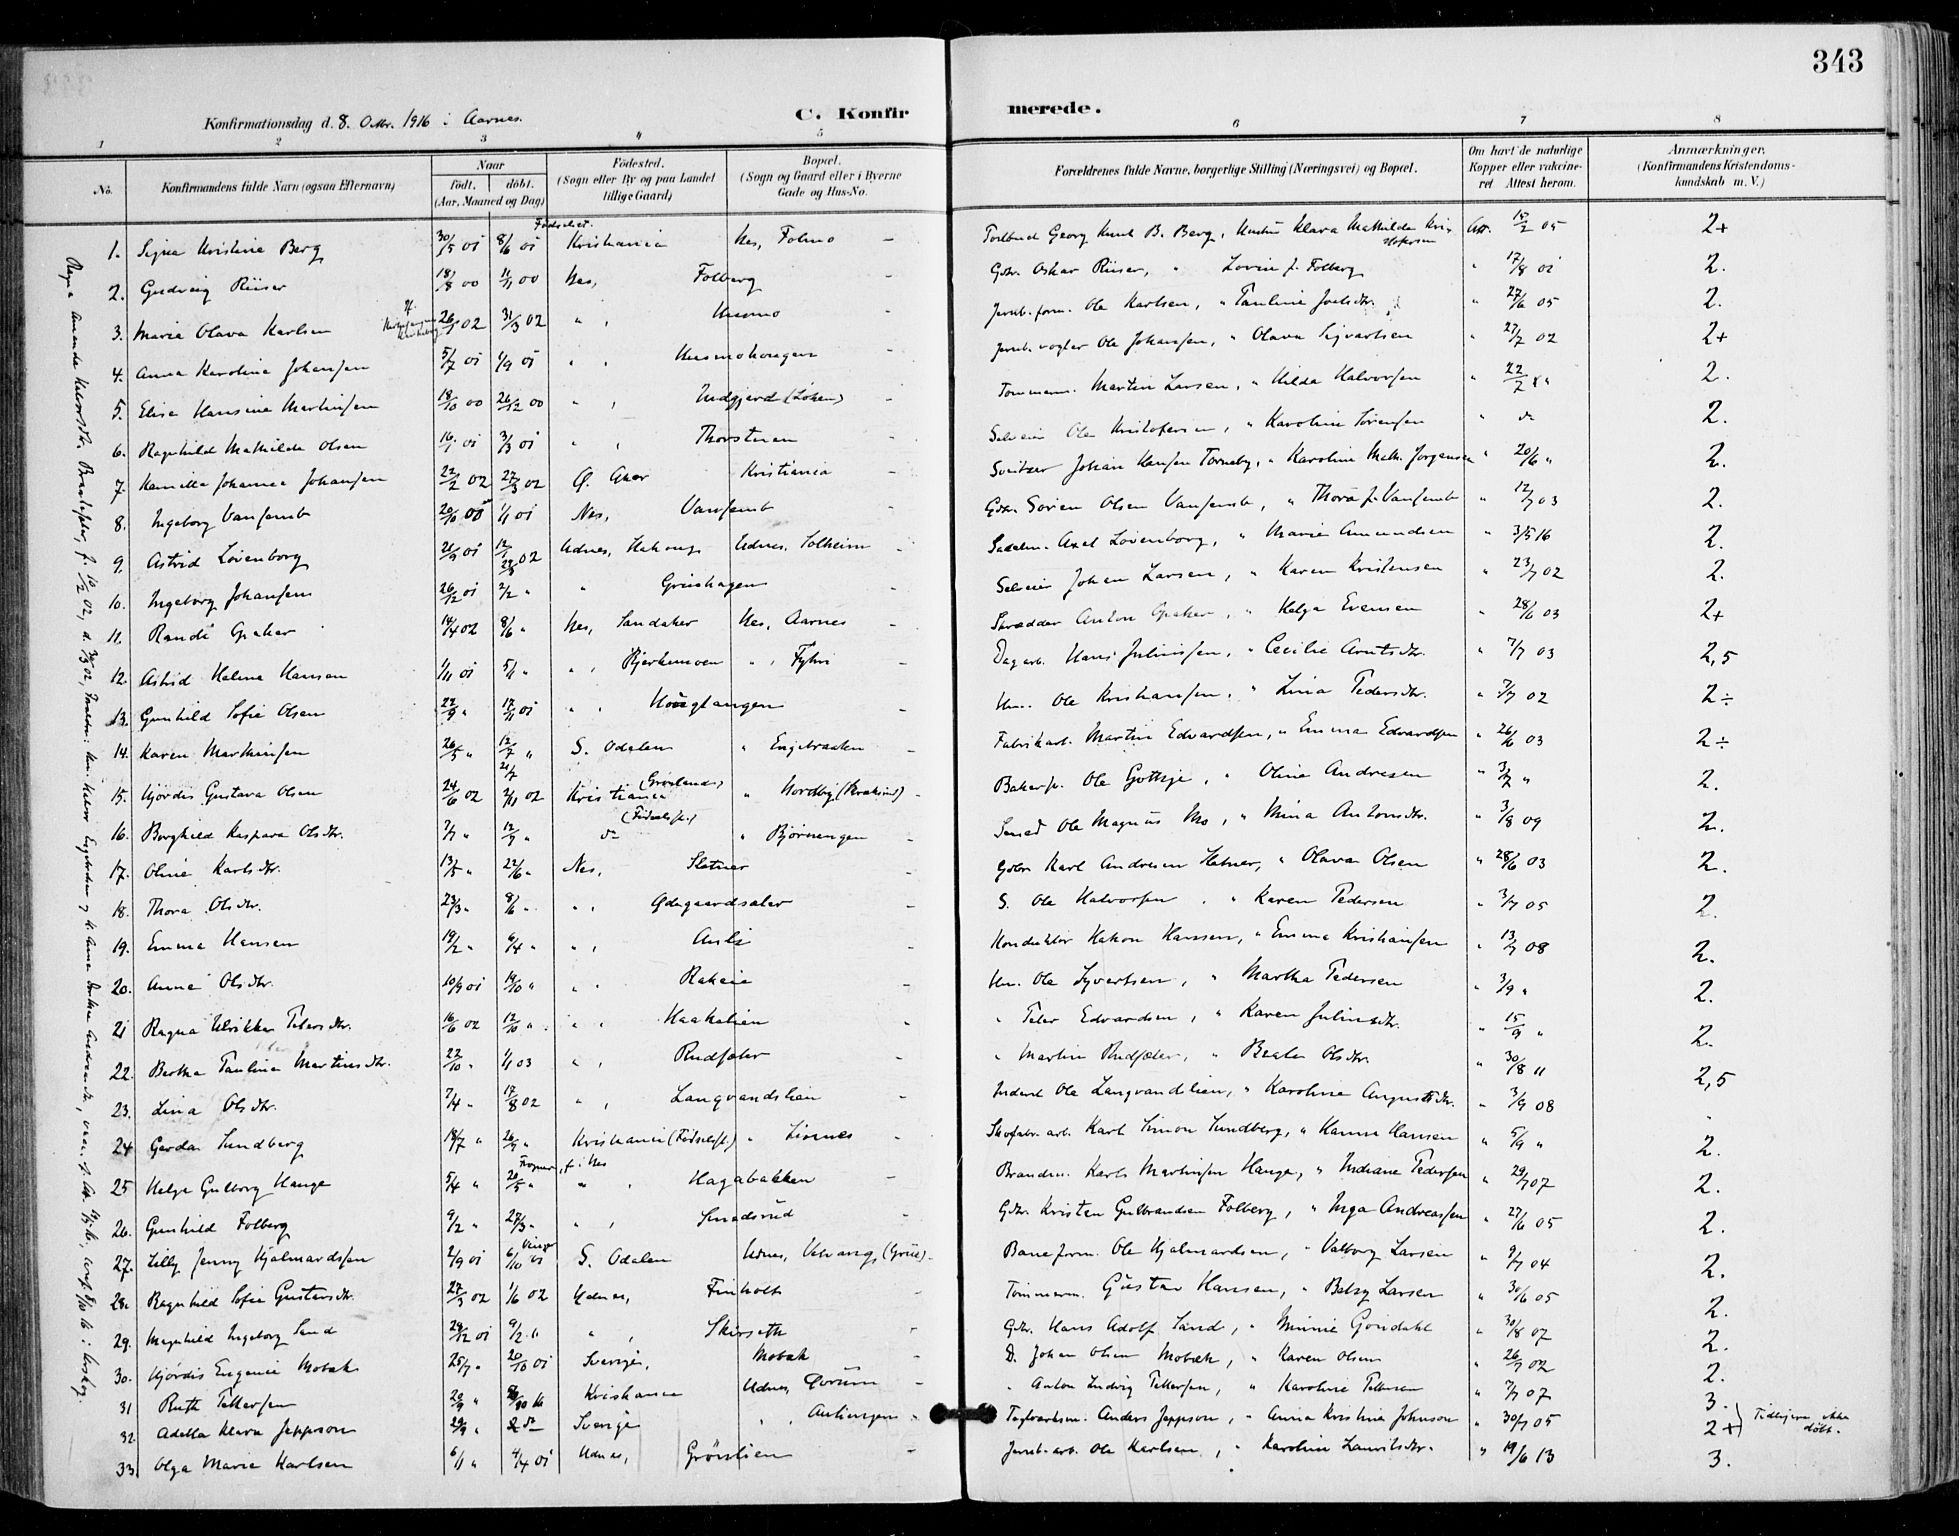 343
Konfirmationsdag d. 8. Oktbr. 1916 i Aarnes.
C. Konfirmerede.
1 2 3 4 5 6 7 8
No. Konfirmandens fulde Navn (ogsaa Efternavn) Naar født, døbt. (Aar, Maaned og Dag) Fødested. (Sogn eller By og paa Landet tillige Gaard) Bopæl. (Sogn og Gaard eller i Byerne Gade og Hus-No. Forældrenes fulde Navne, borgerlige Stilling (Næringsvei) og Bopæl. Om havt de naturlige Kopper eller vakcineret. Attest herom. Anmærkninger. (Konfirmandens Kristendomskundskab m. V.)
1. Signe Kristine Berg 30/5 01 8/6 01 Fødselsst. Kristiania Nes, Folmo Georg Knut B. Berg, Hustru Klara Mathilde Kristofersen Att. 15/2 05 2+
2. Gudveig Riiser 18/8 00 11/11 00 Nes, Folberg Gdbr. Oskar Riiser, " Lovise f. Folberg " 17/8 01 2.
3. Maria Olava Karlsen 26/1 02 31/3 02 " , Husmo Jernb. form. Ole Karlsen, " Pauline Joelsdtr. " 27/6 05 2.
4. Anna Karoline Johansen 5/7 01 1/9 01 " , Husmohaugen Jernb. vogter Ole Johansen, " Olava Sigvartsen " 27/7 02 2+
5. Elise Hansine Martinsen 18/10 00 26/12 00 " , Nedgjerd (Løken) Tømmerm. Martin Larsen, " Hilda Halvorsen " 22/7 " 2.
6. Ragnhild Mathilde Olsen 16/1 01 3/3 01 " , Thorstuen Selveier Ole Kristofersen, " Karoline Sørensen " do 2.
7. Kamilla Johanna Johansen 22/2 02 27/3 02 Ø. Aker Kristiania Johan Hansen Torneby, " Karoline Math. Jørgensen " 20/6 " 2.
8. Ingeborg Vansemb 20/10 00 1/1 01 Nes, Vansemb Gdbr. Søren Olsen Vansemb, " Thora f. Vansemb " 12/7 03 2.
9. Astrid Løvenborg 21/9 01 12/1 02 Udnes, Udnes, Solheim Axel Løvenborg, " Marie Amundsen " 3/5 16 2.
10. Ingeborg Johansen 26/12 01 2/2 " " Grinihagen Selveier Johan Larsen, " Karen Kristensen " 23/7 02 2.
11. Randi Opaker 14/4 02 8/6 " Nes, Sandaker Nes, Aarnes Skrædder Anton Opaker, " Helga Evensen " 28/6 03 2+
12. Astrid Helene Hansen 1/11 01 5/1 " " , Bjerkemoen " , Fyhri Dagarb. Hans Juliussen, " Cecilie Arntsdtr. " 7/7 03 2,5
13. Gunhild Sofie Olsen 22/9 " 17/11 01 " , Hougtangen Hm. Ole Kristiansen, " Lina Pedersdtr. " 7/7 02 2÷
14. Karen Martinsen 26/5 " 12/7 " S. Odalen " Engebraaten Fabrikarb. Martin Edvardsen, " Emma Edvardsen " 26/6 03 2÷
15. Hjørdis Gustava Olsen 24/6 02 2/11 02 Kristiania (Grønland) " Nordby Ole Gottsje, " Oline Andresen " 3/7 " 2.
16. Borghild Kaspara Olsdtr. 7/7 " 12/9 " do (Fødselsst.) " Bjørnengen Smed Ole Magnus Mo, " Mina Antonsdtr. " 3/8 09 2.
17. Oline Karlsdtr. 13/5 " 22/6 " Nes, Sletner Gdbr. Karl Andresen Sletner, " Olava Olsen " 28/6 03 2.
18. Thora Olsdtr. 23/3 " 8/6 " " , Ødegaardsaler S. Ole Halvorsen, " Karen Pedersen " 3/7 05 2.
19. Emma Hansen 19/2 " 6/4 " " , Aulie Konduktør Hakon Hanssen, " Emma Kristiansen " 13/7 08 2.
20. Anna Olsdtr. 10/9 01 19/10 " " , Rakeie Hm. Ole Syvertsen, " Martha Pedersen " 3/9 " 2.
21 Ragna Ulrikke Petersdtr. 16/6 02 12/10 " " , Haakalien " Peter Edvardsen, " Karen Juliusdtr. " 15/9 " 2.
22. Bertha Pauline Martinsdtr. 22/10 " 1/1 03 " , Rudsæter " Martin Rudsæter, " Beate Olsdtr. " 30/8 11 2,5
23. Lina Olsdtr. 7/4 " 17/8 02 " , Langvandslien Inderst Ole Langvandslien, " Karoline Augustsdtr. " 3/9 08 "
24 Gerda Sundberg 18/7 " 26/9 " Kristiania (Fødselsst.) " Liernes Skofabr. arb. Karl Simon Sundberg, " Hanna Hansen " 5/9 " 2.
25 Helga Gulborg Hauge 5/4 " 20/5 " " , Hagabakken Brandm. Karl Martinsen Hauge, " Indiane Pedersen " 29/7 07 2.
26. Gunhild Folberg 9/2 " 27/3 " " , Smedsrud Gdbr. Kristen Gulbrandsen Folberg, " Inga Andreassen " 27/6 05 2.
27. Lilly Jenny Hjalmardssen 2/9 01 6/10 01 S. Odalen Udnes, (Grue) Baneform. Ole Hjalmardsen, " Valborg Larsen " 9/7 04 2.
28. Ragnhild Sofie Gustavsdtr. 27/3 02 1/6 02 Udnes, Finholt Tømmerm. Gustav Hansen, " Betzy Larsen " 30/6 05 2.
29. Magnhild Ingeborg Sand 29/12 01 9/2 " " , Skirseth Gdbr. Hans Adolf Sand, " Minnie Gondahl " 30/8 07 2.
30. Hjørdis Eugenie Mobæk 25/7 " 20/10 01 Sverige, Mobæk D. Johan Olsen Mobæk, " Karen Olsen " 26/7 02 2.
31 Ruth Pettersen 20/9 " 8/10 16 Kristiania Udnes, " Anton Ludvig Pettersen, " Karoline Pettersen " 7/7 07 3.
32. Adella Klara Jeppson 29/9 " do Sverige " , Teglverksm. Anders Jeppson, " Anna Kristine Johnson " 30/7 05 2+ Tidligere ikke døbt.
33 Olga Marie Karlsen 6/1 " 4/4 01 Udnes, Grønlien Jernb. arb. Ole Karlsen, " Karoline Lauritsdtr. " 19/6 13 3.